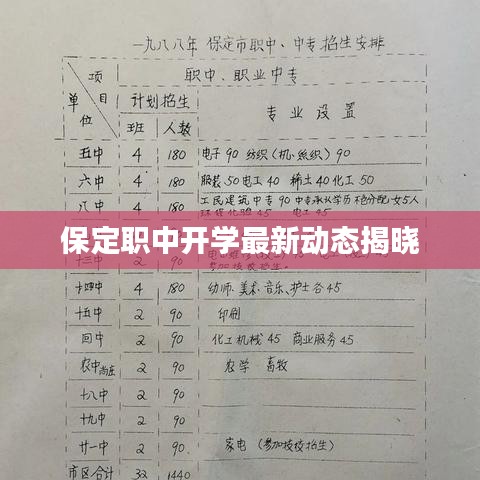 一九八八年 保定市职中、中专招生安排
项目 单位
职中、职业中专
计划招生
专业设置
班 人数
五中 4 180 电子90 纺织(机、丝织)90
六中 4 180 服装50 电工40 稀土40 化工50
八中 4 180 工民建筑中专90 中专承认学历不包分配,女5人
保定职中开学最新动态揭晓
十三中 2 90
十四中 4 180 幼师、美术、音乐、护士各45
十五中 2 90 印刷
回中 2 90 化工机械45 商业服务45
农中 2 90 农学 畜牧
十八中 2 90
十九中 2 90
廿一中 2 90 家电(参加技校招生)
市区合计 32 1440